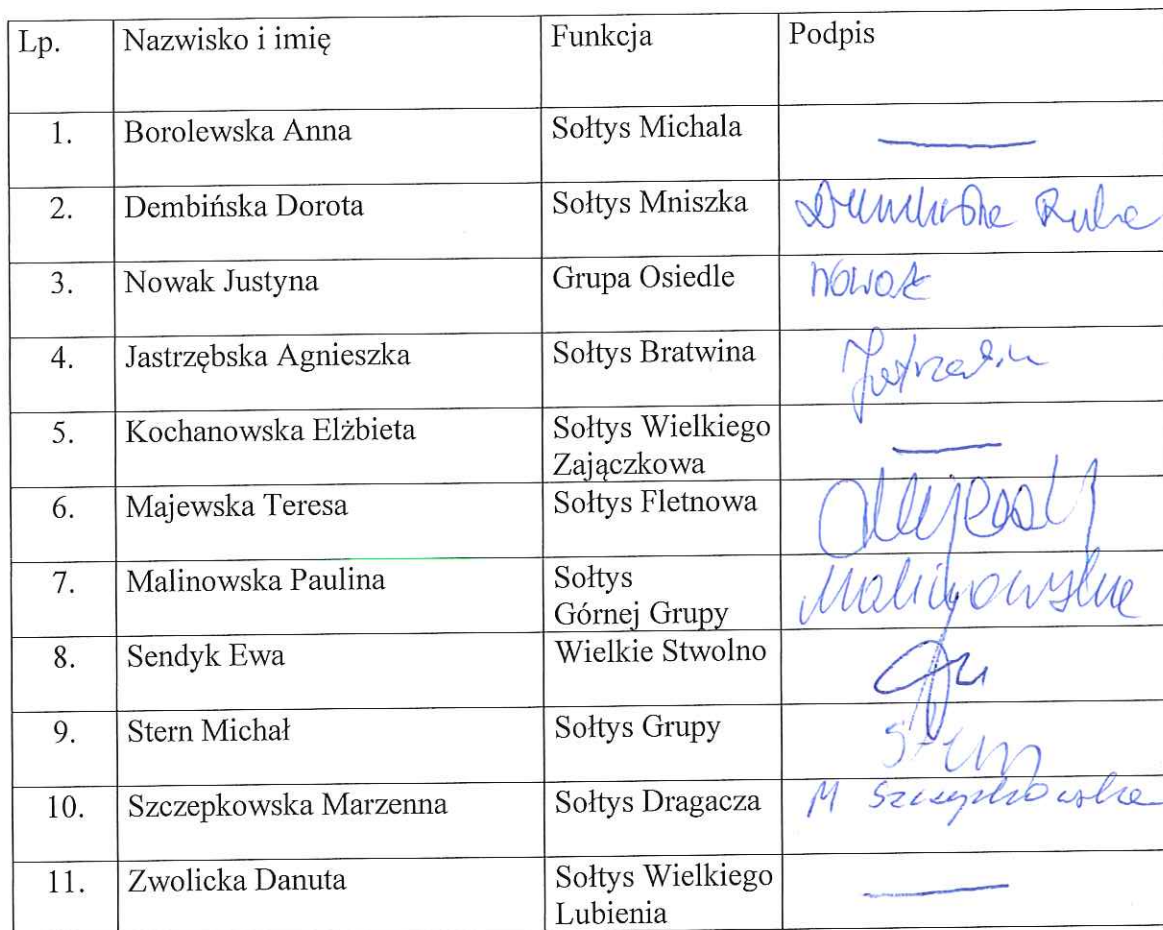 Lp. Nazwisko i imię Funkcja Podpis
1. Borolewska Anna Sołtys Michala
2. Dembińska Dorota Sołtys Mniszka
3. Nowak Justyna Grupa Osiedle Nowak
4. Jastrzębska Agnieszka Sołtys Bratwina
5. Kochanowska Elżbieta Sołtys Wielkiego
Zajączkowa
6. Majewska Teresa Sołtys Fletnowa
7. Malinowska Paulina Sołtys Malinowska
Górnej Grupy
8. Sendyk Ewa Wielkie Stwolno
9. Stern Michał Sołtys Grupy Stern
10. Szczepkowska Marzenna Sołtys Dragacza M Szczepkowska
11. Zwolicka Danuta Sołtys Wielkiego
Lubienia